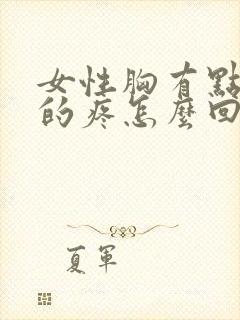 女性胸有點
的疼怎麼回
夏軍